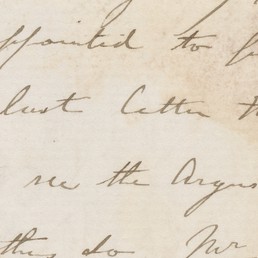 ppointed to
last letter
see the Argus
they do Mr